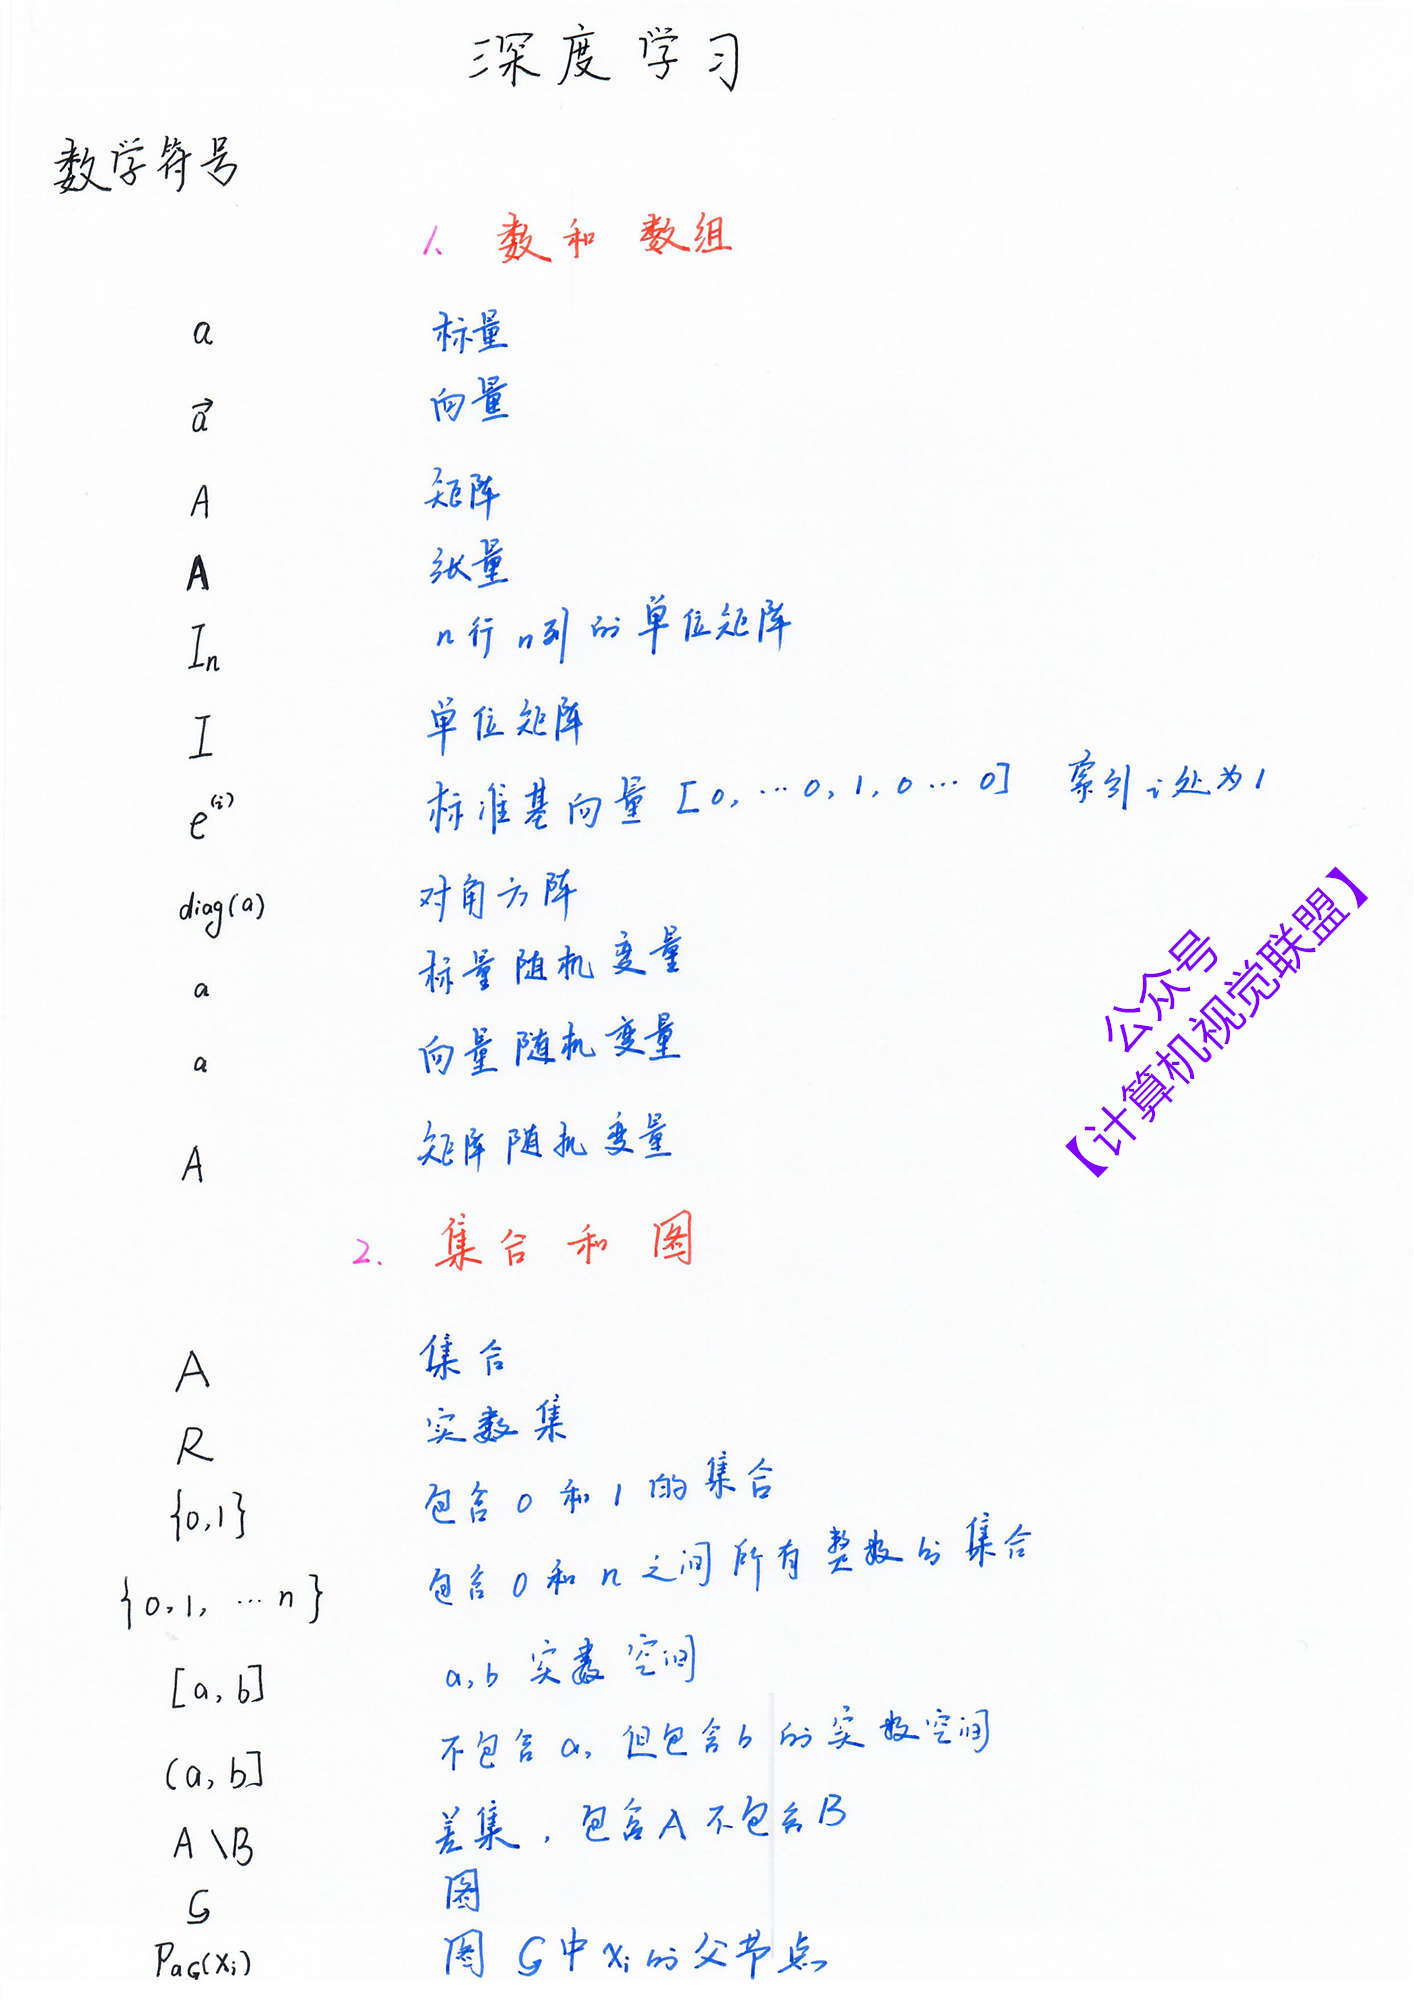 深度学习
数学符号
1、数和数组
a 标量
a⃗ 向量
A 矩阵
A 张量
Iₙ n行n列的单位矩阵
I 单位矩阵
e⁽ⁱ⁾ 标准基向量 [0, …0, 1, 0…0] 索引i处为1
diag(a) 对角方阵
a 标量随机变量
a 向量随机变量
A 矩阵随机变量
公众号
【计算机视觉联盟】
2. 集合和图
A 集合
R 实数集
{0,1} 包含0和1的集合
{0,1, …n} 包含0和n之间所有整数的集合
[a,b] a,b实数空间
(a,b] 不包含a,但包含b的实数空间
A\B 差集,包含A不包含B
G 图
PaG(xi) 图G中xi的父节点